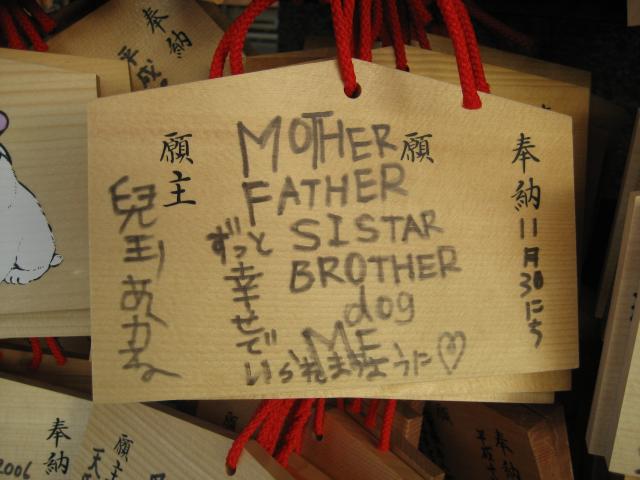 奉納
11月30にち
願
MOTHER
FATHER
SISTAR
BROTHER
dog
ME
ずっと幸せで
いられますように♡
願主
兒玉あかね
奉納
平成
2006
奉納
願主
奉納